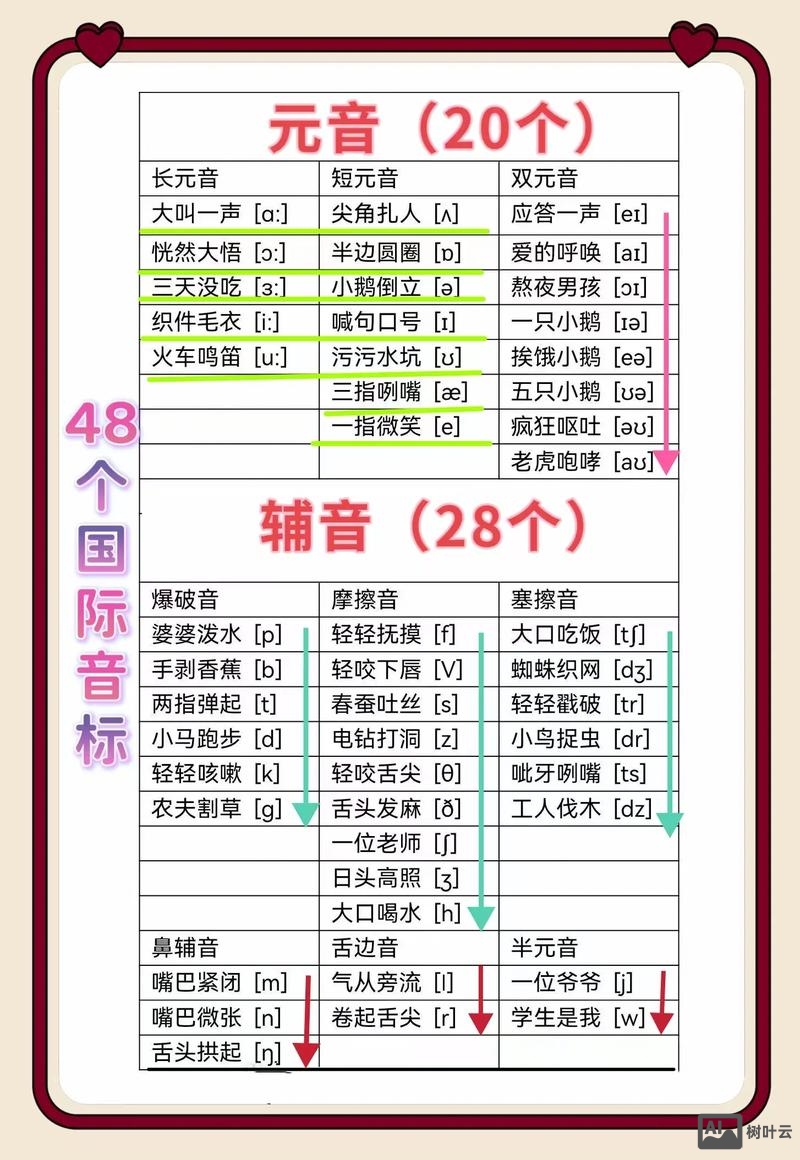 元音（20个）
长元音 短元音 双元音
大叫一声 [ɑ:] 尖角扎人 [ʌ] 应答一声 [eɪ]
恍然大悟 [ɔ:] 半边圆圈 [ɒ] 爱的呼唤 [aɪ]
三天没吃 [ɜ:] 小鹅倒立 [ə] 熬夜男孩 [ɔɪ]
织件毛衣 [i:] 喊句口号 [ɪ] 一只小鹅 [ɪə]
火车鸣笛 [u:] 污污水坑 [ʊ] 挨饿小鹅 [eə]
三指咧嘴 [æ] 五只小鹅 [ʊə]
一指微笑 [e] 疯狂呕吐 [əʊ]
老虎咆哮 [aʊ]
48个国际音标
辅音（28个）
爆破音 摩擦音 塞擦音
婆婆泼水 [p] 轻轻抚摸 [f] 大口吃饭 [tʃ]
手剥香蕉 [b] 轻咬下唇 [V] 蜘蛛织网 [dʒ]
两指弹起 [t] 春蚕吐丝 [s] 轻轻戳破 [tr]
小马跑步 [d] 电钻打洞 [z] 小鸟捉虫 [dr]
轻轻咳嗽 [k] 轻咬舌尖 [θ] 呲牙咧嘴 [ts]
农夫割草 [g] 舌头发麻 [ð] 工人伐木 [dz]
一位老师 [ʃ]
日头高照 [ʒ]
大口喝水 [h]
鼻辅音 舌边音 半元音
嘴巴紧闭 [m] 气从旁流 [l] 一位爷爷 [j]
嘴巴微张 [n] 卷起舌尖 [r] 学生是我 [w]
舌头拱起 [ŋ]
AI 树叶云